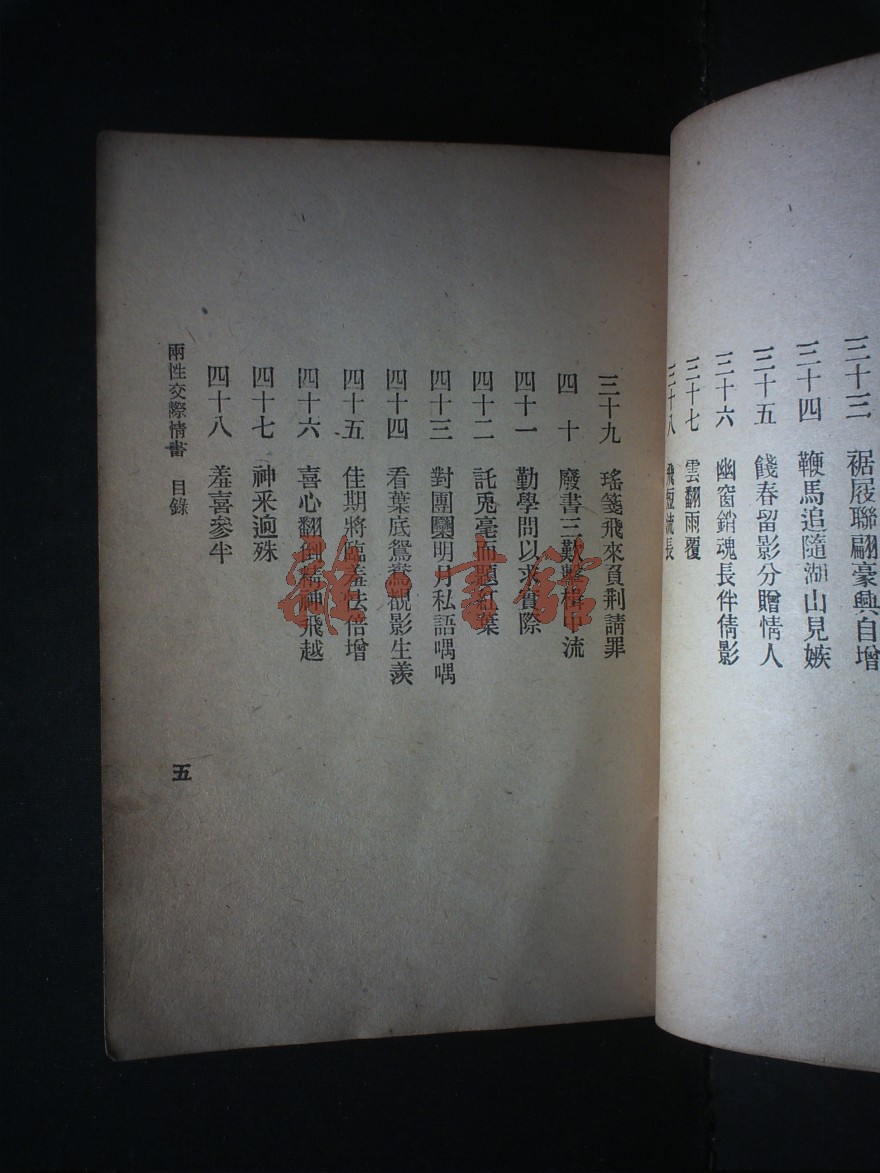 三十三　裾屐聯翩豪興自增
三十四　鞭馬追隨湖山見嫉
三十五　餞春留影分贈情人
三十六　幽窗銷魂長伴倩影
三十七　雲翻雨覆
三十八　飛短流長
三十九　瑤箋飛來負荆請罪
四十　廢書三歎擊楫中流
四十一　勤學問以求實際
四十二　託兎毫而題紅葉
四十三　對團圞明月私語喁喁
四十四　看葉底鴛鴦覩影生羨
四十五　佳期將臨羞怯倍增
四十六　喜心翻倒精神飛越
四十七　神釆逈殊
四十八　羞喜參半
兩性交際情書　目錄
五